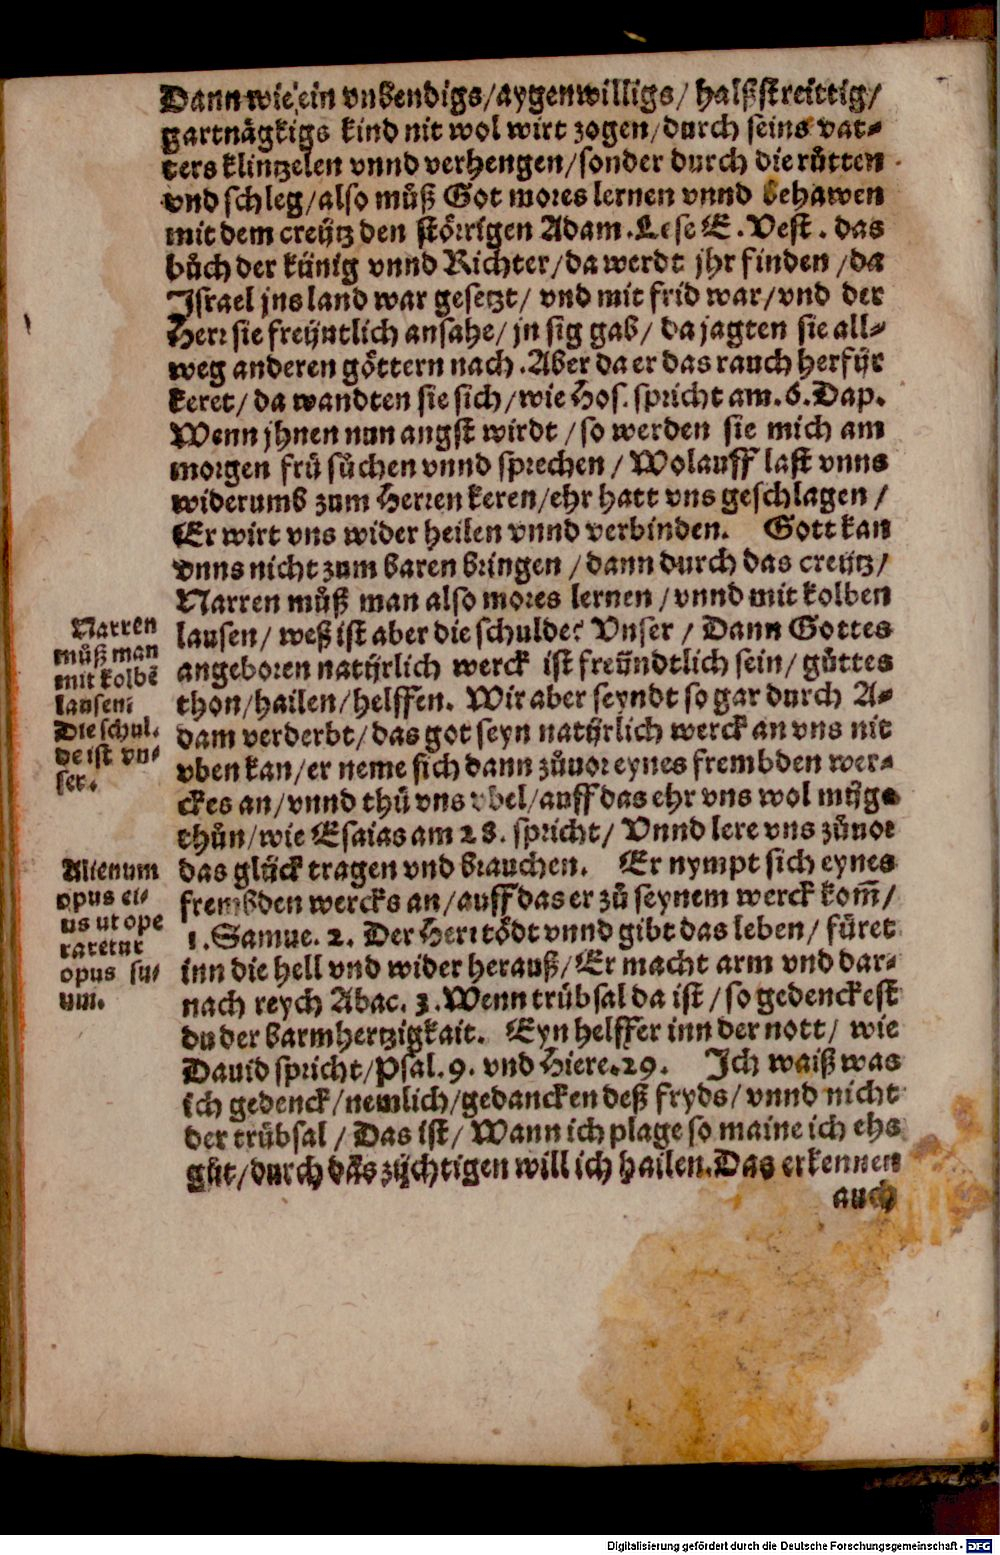 Dann wie ein vnbendigs/aygenwilligs/ halßstreittig/
gartnägkigs kind nit wol wirt zogen/durch seins vat⸗
ters klintzelen vnnd verhengen/sonder durch die růtten
vnd schleg/also můß Got mores lernen vnnd behawen
mit dem creütz den störrigen Adam. Lese E. Vest. das
bůch der künig vnnd Richter/da werdt jhr finden /da
Israel jns land war gesetzt/ vnd mit frid war/vnd der
Herr sie freÿntlich ansahe/ jn sig gab/ da jagten sie all⸗
weg anderen göttern nach. Aber da er das rauch herfÿr
keret/ da wandten sie sich/wie Hos. spricht am. 6. Dap.
Wenn jhnen nun angst wirdt /so werden sie mich am
morgen frü sůchen vnnd sprechen / Wolauff last vnns
widerumb zum Herren keren/ehr hatt vns geschlagen /
Er wirt vns wider heilen vnnd verbinden. Gott kan
vnns nicht zum baren bringen /dann durch das creütz/
Narren můß man also mores lernen /vnnd mit kolben
lausen/ weß ist aber die schulde? Vnser / Dann Gottes
angeboren natÿrlich werck ist freündtlich sein/ gůttes
thon/hailen/helffen. Wir aber seyndt so gar durch A⸗
dam verderbt/das got seyn natÿrlich werck an vns nit
vben kan/er neme sich dann zůuor eynes frembden wer⸗
ckes an/vnnd thů vns vbel/auff das ehr vns wol müge
thůn/wie Esaias am 28. spricht/ Vnnd lere vns zůuor
das glück tragen vnd brauchen. Er nympt sich eynes
frembden wercks an/auff das er zů seynem werck kom̃/
1. Samue. 2. Der Herr tödt vnnd gibt das leben/ füret
inn die hell vnd wider herauß/Er macht arm vnd dar⸗
nach reych Abac. 3. Wenn trübsal da ist /so gedenckest
du der barmhertzigkait. Eyn helffer inn der nott/ wie
Dauid spricht/Psal. 9. vnd Hiere. 29. Ich waiß was
ich gedenck/nemlich/gedancken deß fryds/vnnd nicht
der trübsal /Das ist/ Wann ich plage so maine ich ehs
gůt/durch das züchtigen will ich hailen. Das erkennen
auch
Narren
můß man
mit kolbẽ
lausen:
Die schul⸗
de ist vn⸗
ser.
Alienum
opus ei⸗
us ut ope
raretur
opus su⸗
um.
Digitalisierung gefördert durch die Deutsche Forschungsgemeinschaft - DFG